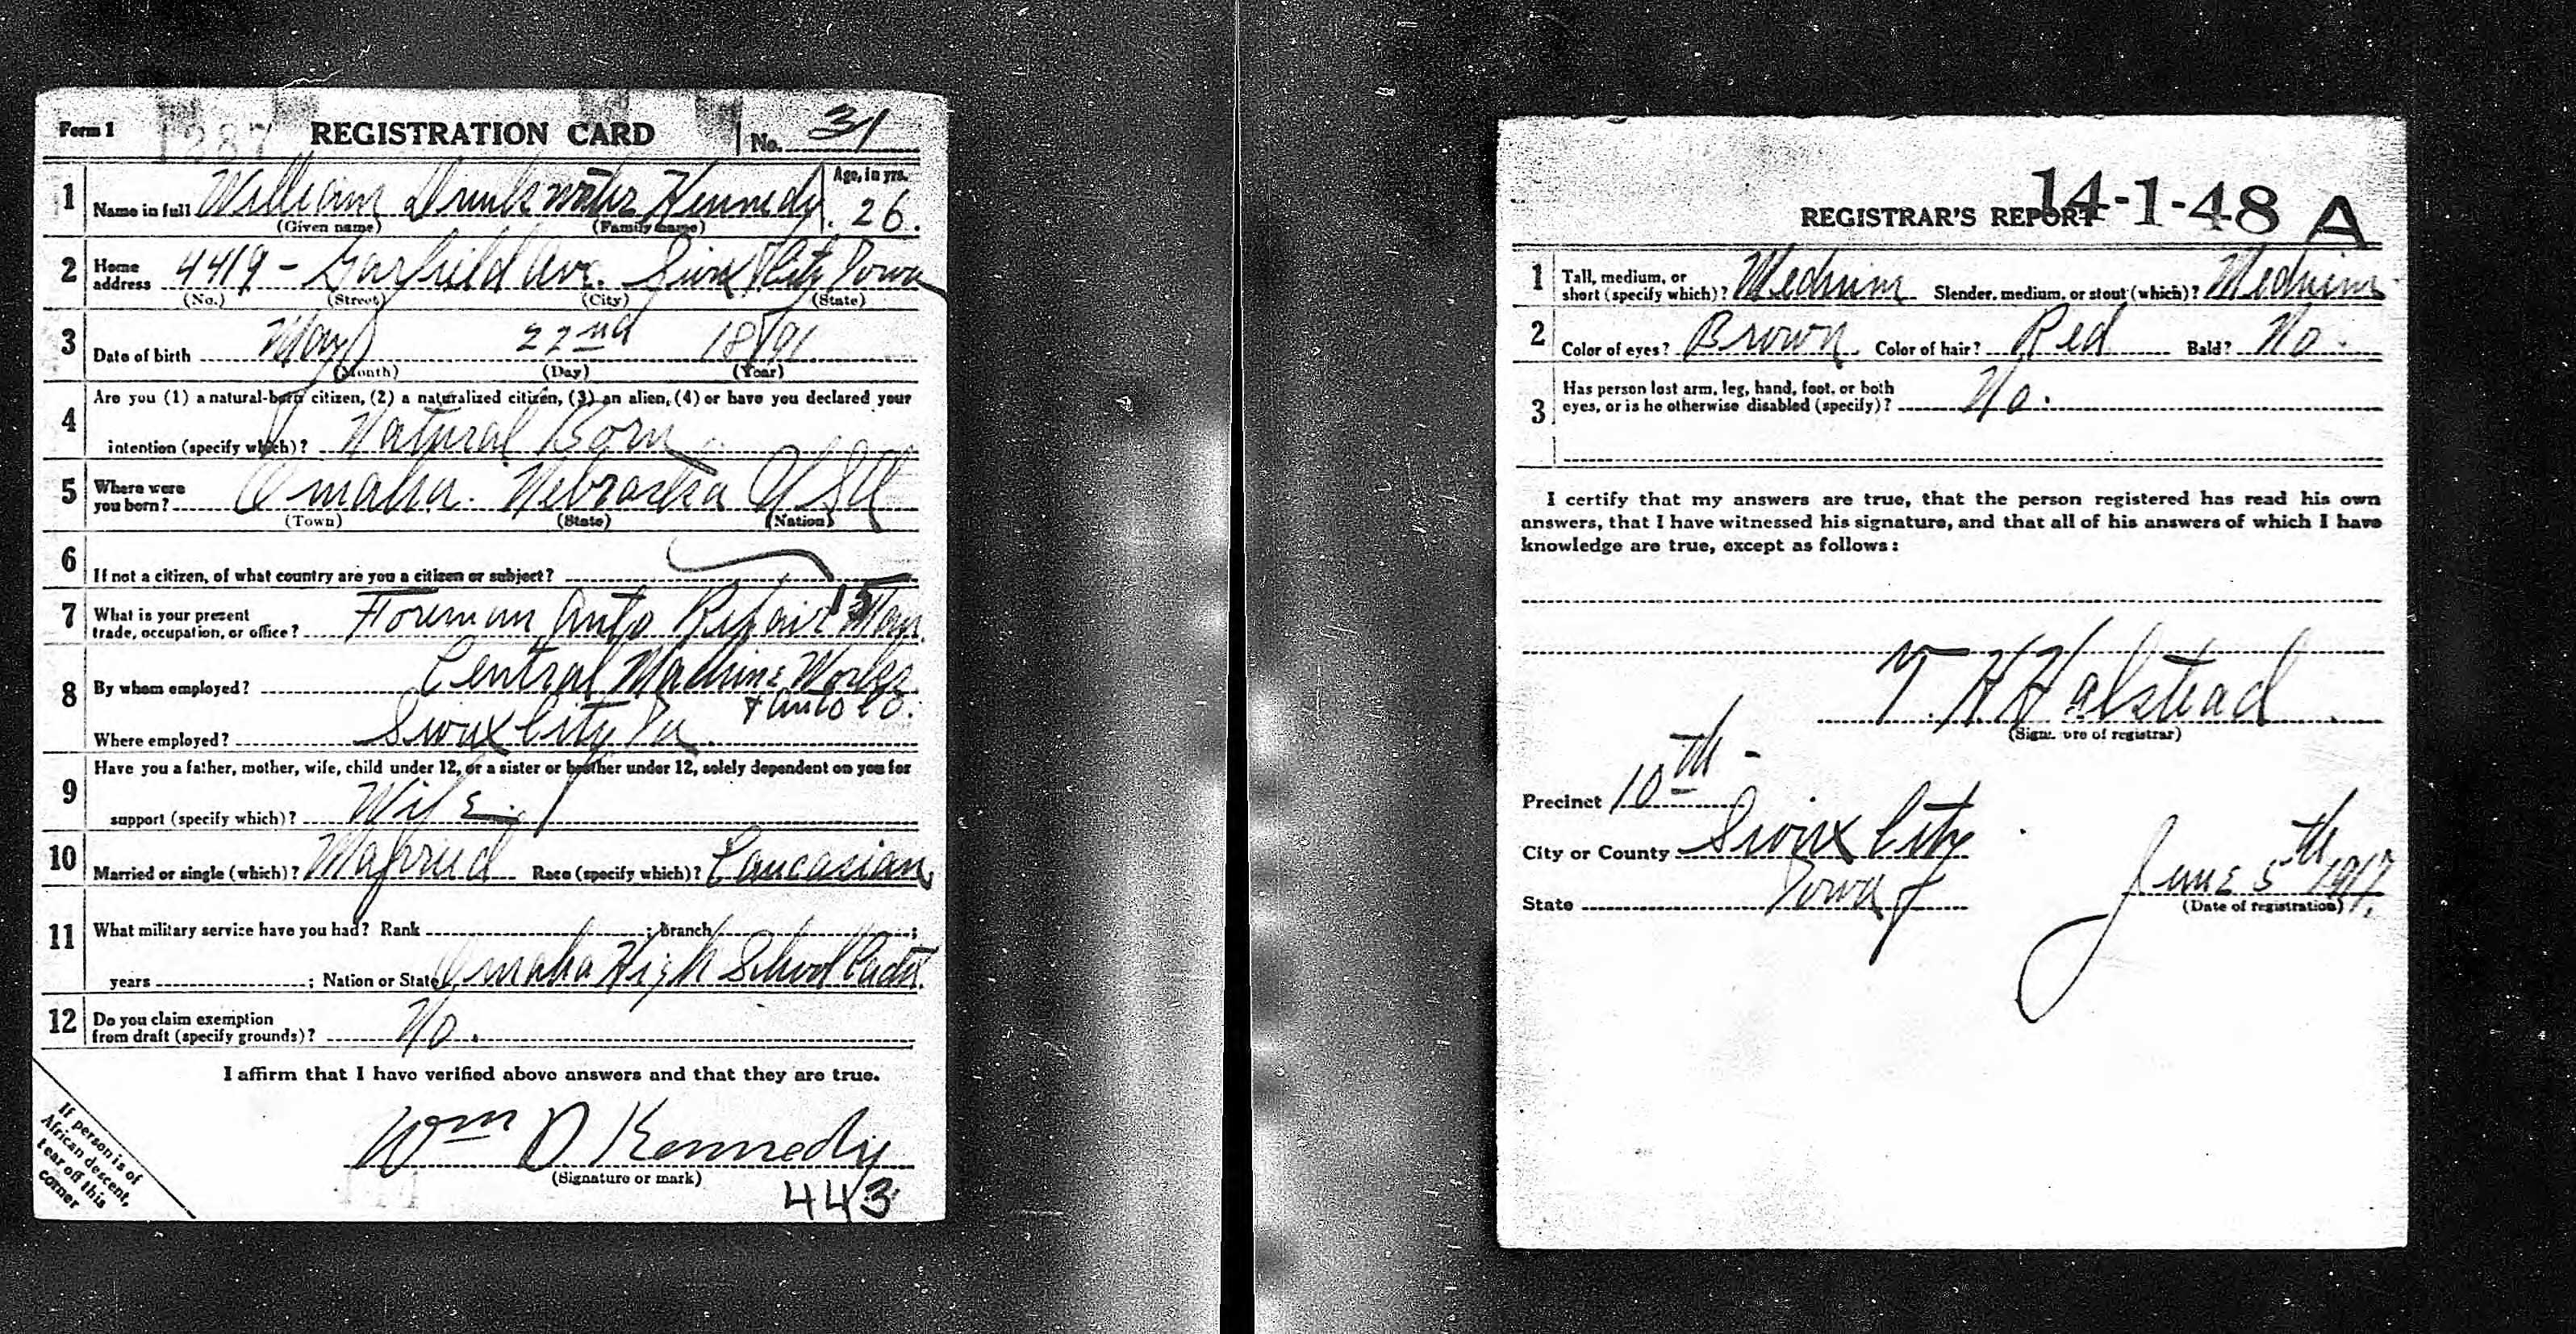 Form 1 1287 REGISTRATION CARD No. 31
1 Name in full William Drinkwater Kennedy Age, in yrs. 26.
(Given name) (Family name)
2 Home address 4419 - Garfield Ave. Sioux City Iowa
(No.) (Street) (City) (State)
3 Date of birth May 22nd 1891
(Month) (Day) (Year)
4 Are you (1) a natural-born citizen, (2) a naturalized citizen, (3) an alien, (4) or have you declared your
intention (specify which)? Natural Born
5 Where were you born? Omaha. Nebraska USA
(Town) (State) (Nation)
6 If not a citizen, of what country are you a citizen or subject?
15
7 What is your present trade, occupation, or office? Foreman Auto Repair Man.
8 By whom employed? Central Machine Works
& Auto Co.
Where employed? Sioux City Ia.
9 Have you a father, mother, wife, child under 12, or a sister or brother under 12, solely dependent on you for
support (specify which)? Wife.
10 Married or single (which)? Married Race (specify which)? Caucasian
11 What military service have you had? Rank ; branch ;
years ; Nation or State Omaha High School Cadet.
12 Do you claim exemption from draft (specify grounds)? No.
I affirm that I have verified above answers and that they are true.
Wm D Kennedy
(Signature or mark)
443
If person is of
African descent,
tear off this
corner
14-1-48 A
REGISTRAR'S REPORT
1 Tall, medium, or short (specify which)? Medium Slender, medium, or stout (which)? Medium
2 Color of eyes? Brown Color of hair? Red Bald? No.
3 Has person lost arm, leg, hand, foot, or both eyes, or is he otherwise disabled (specify)? No.
I certify that my answers are true, that the person registered has read his own
answers, that I have witnessed his signature, and that all of his answers of which I have
knowledge are true, except as follows:
T. H. Halstead
(Signature of registrar)
Precinct 10th -
City or County Sioux City
State Iowa
June 5th 1917.
(Date of registration)